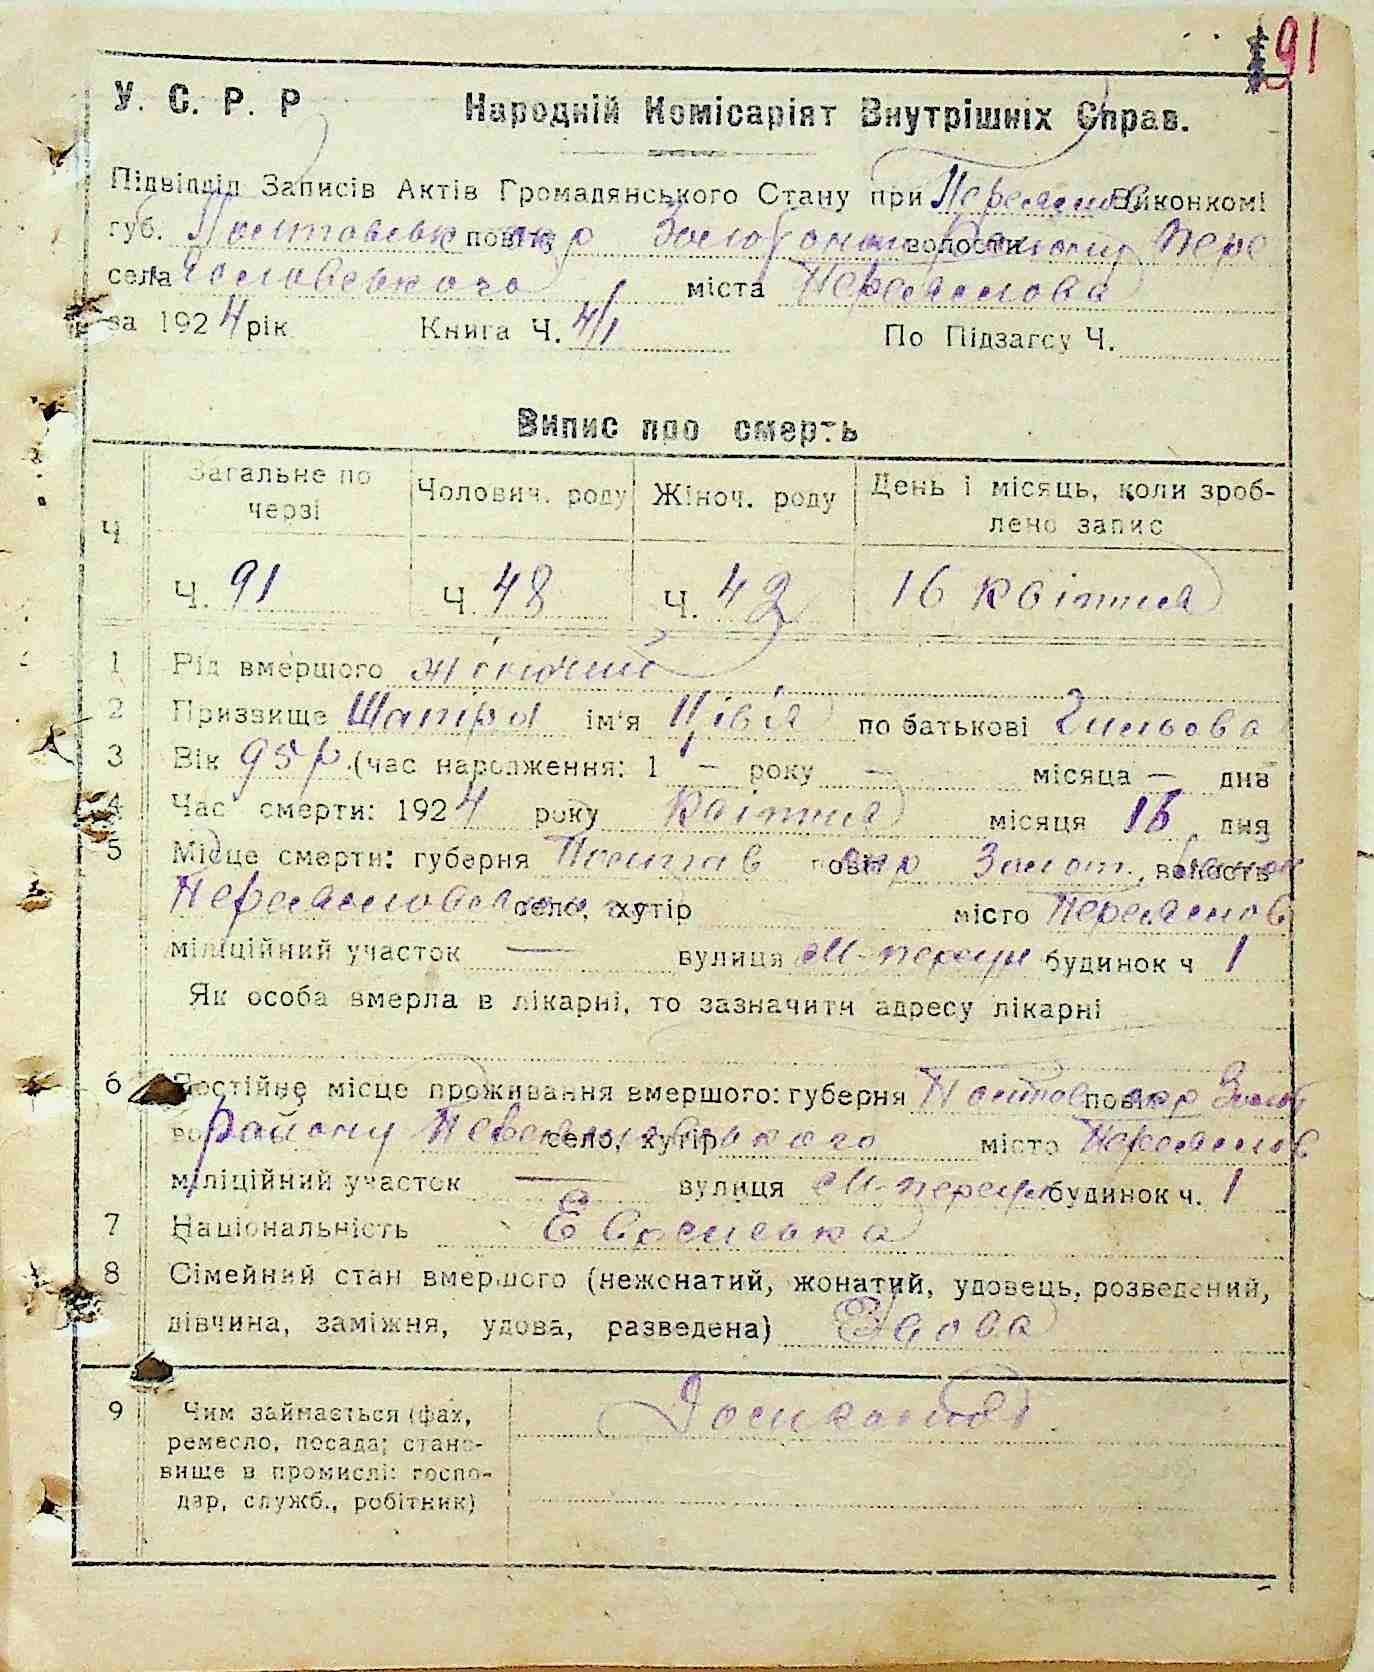 91
У. С. Р. Р Народній Комісаріят Внутрішніх Справ.
Підвідділ Записів Актів Громадянського Стану при Переяслов Виконкомі
губ. Полтавськ повіт окр Золотонош волости Району Пере
села яславського міста Переяслова
за 1924 рік Книга Ч. 4/1 По Підзагсу Ч.
Випис про смерть
Ч Загальне по черзі Чоловіч. роду Жіноч. роду День і місяць, коли зроб-
лено запис
Ч. 91 Ч. 48 Ч. 43 16 Квітня
1 Рід вмершого жіночий
2 Призвище Шапіро ім'я Ців'я по батькові
3 Вік 95 р. (час народження: 1 — року — місяца — дня
4 Час смерти: 1924 року Квітня місяця 16 дня
5 Місце смерти: губерня Полтав повіт окр Золот. волость
село, хутір місто Переяслов
міліційний участок — вулиця будинок ч 1
Як особа вмерла в лікарні, то зазначити адресу лікарні
6 Постійне місце проживання вмершого: губерня Полтав повіт окр Золот
району Переяславського село, хутір місто Переяслов
міліційний участок — вулиця будинок ч. 1
7 Національність Європейська
8 Сімейний стан вмершого (неженатий, жонатий, удовець, розведений,
дівчина, заміжня, удова, разведена) Вдова
9 Чим займається (фах,
ремесло, посада; стано-
вище в промислі: госпо-
дар, служб., робітник)